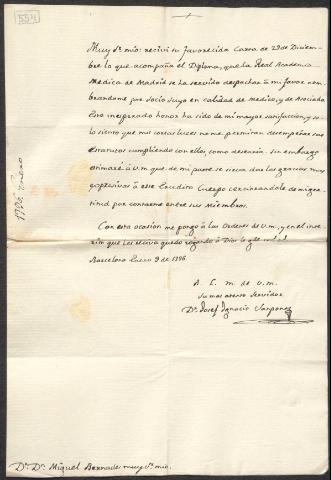 554
Muy Sr mio: recivi su favorecida Carta de 29 de Diciem-
bre lo que acompaña el Diploma, que la Real Academia
Medica de Madrid se ha servido despachar à mi favor nom-
brandome por Socio suyo en calidad de medico, y de Asociado.
Este inesperado honor ha sido de mi mayor satisfaccion, y so-
lo siento que mis cortas luces no me permitan desempeñar sus
Estatutos cumpliendo con ellos, como desearia. Sin embargo
estimaré à V.m. que de mi parte se sirva dar las gracias mas
expresivas à este Erudito Cuerpo cerciorandole de mi gra-
titud por contarme entre sus Miembros.
Con esta ocasion me pongo à las Ordenes de V.m., y en el inte-
rim que las recivo quedo rogando à Dios le gde ms as
Barcelona Enero 9 de 1796
B. L. M. de V.m.
su mas atento Servidor
Dr. Josef Ignacio Sanponts
1796 Enero
Dr. Dn. Miguel Bernades muy Sr. mio.